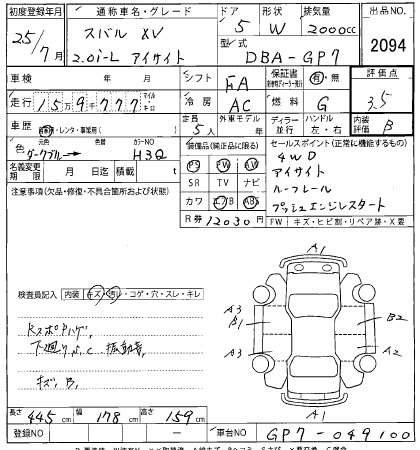 初度登録年月 通称車名・グレード ドア 形状 排気量 出品NO
25/7月 スバル XV 5 W 2000cc
2.0i-L アイサイト 型式 DBA-GP7 2094
車検 年 月 シフト FA 保証書 有・無 評価点
走行 15万9千777 マイル キロ 冷房 AC 燃料 G 3.5
車歴 自家用・レンタ・事業用( ) 定員 5人 外車モデル 年 ディーラー 並行 ハンドル 左・右 内装評価 B
色 ダークブルー → 色替 カラーNO H3Q 装備品(純正品に限る) セールスポイント(正常に機能するもの)
名義変更期限 月 日迄 積載 t PS PW AW 4WD
注意事項(欠品・修復・不具合箇所および状態) SR TV ナビ アイサイト
カワ エアB ABS ルーフレール
R券 12030円 プッシュエンジンスタート
FW キズ・ヒビ割・リペア跡・X要
A1
検査員記入 内装 キズ・汚レ・コゲ・穴・スレ・キレ
A3 B1 B2
A3 A2
下廻り
キズ、B、
A1
長さ 445cm 幅 178cm 高さ 159cm
登録NO — 車台NO GP7-049100